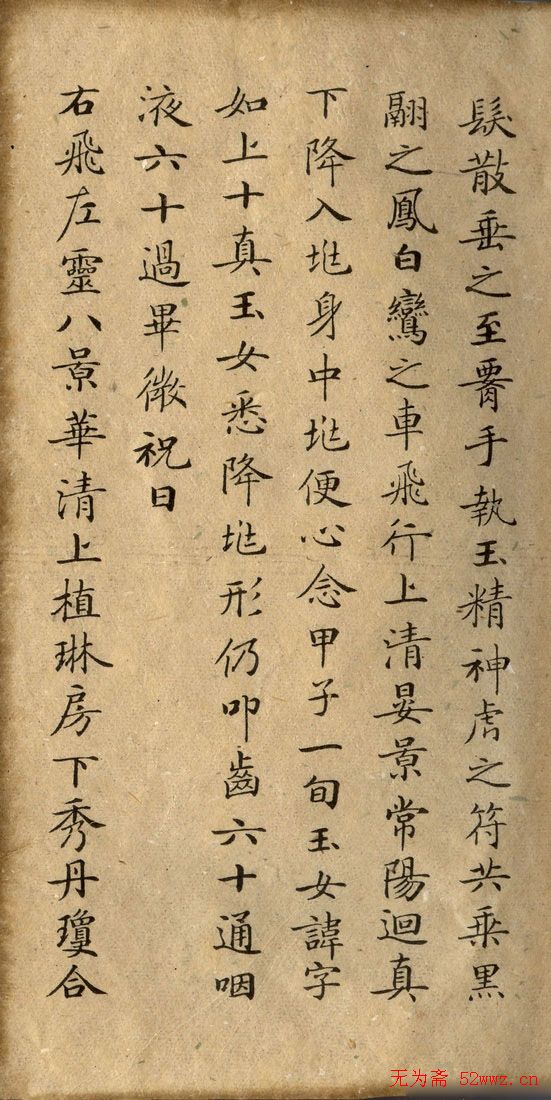 髮散垂之至署手執玉精神虎之符共乗黒
翮之鳳白鸞之車飛行上清晏景常陽迴真
下降入玼身中玼便心念甲子一旬玉女諱字
如上十真玉女悉降玼形仍叩齒六十通咽
液六十過畢微祝曰
右飛左靈八景華清上植琳房下秀丹瓊合
无为斋 52wwz.cn